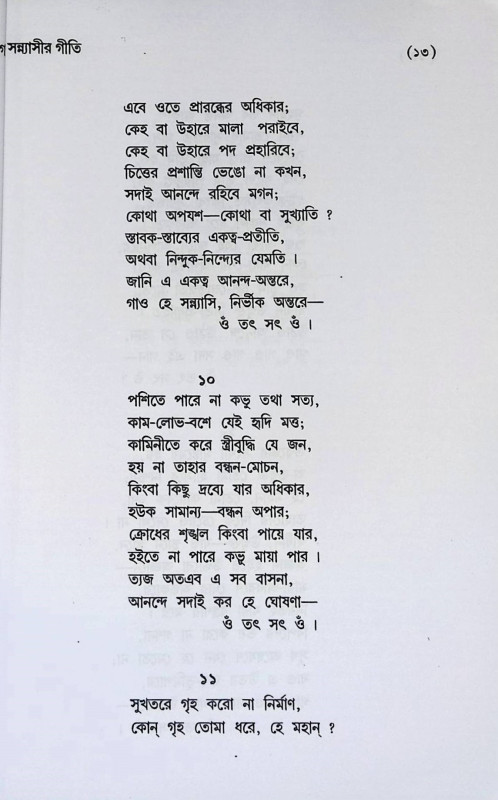 সন্ন্যাসীর গীতি (১৩)
এবে ওতে প্রারব্ধের অধিকার;
কেহ বা উহারে মালা পরাইবে,
কেহ বা উহারে পদ প্রহারিবে;
চিত্তের প্রশান্তি ভেঙো না কখন,
সদাই আনন্দে রহিবে মগন;
কোথা অপযশ—কোথা বা সুখ্যাতি ?
স্তাবক-স্তাব্যের একত্ব-প্রতীতি,
অথবা নিন্দুক-নিন্দ্যের যেমতি ।
জানি এ একত্ব আনন্দ-অন্তরে,
গাও হে সন্ন্যাসি, নির্ভীক অন্তরে—
ওঁ তৎ সৎ ওঁ ।
১০
পশিতে পারে না কভু তথা সত্য,
কাম-লোভ-বশে যেই হৃদি মত্ত;
কামিনীতে করে স্ত্রীবুদ্ধি যে জন,
হয় না তাহার বন্ধন-মোচন,
কিংবা কিছু দ্রব্যে যার অধিকার,
হউক সামান্য—বন্ধন অপার;
ক্রোধের শৃঙ্খল কিংবা পায়ে যার,
হইতে না পারে কভু মায়া পার ।
ত্যজ অতএব এ সব বাসনা,
আনন্দে সদাই কর হে ঘোষণা—
ওঁ তৎ সৎ ওঁ ।
১১
সুখতরে গৃহ করো না নির্মাণ,
কোন্ গৃহ তোমা ধরে, হে মহান্ ?